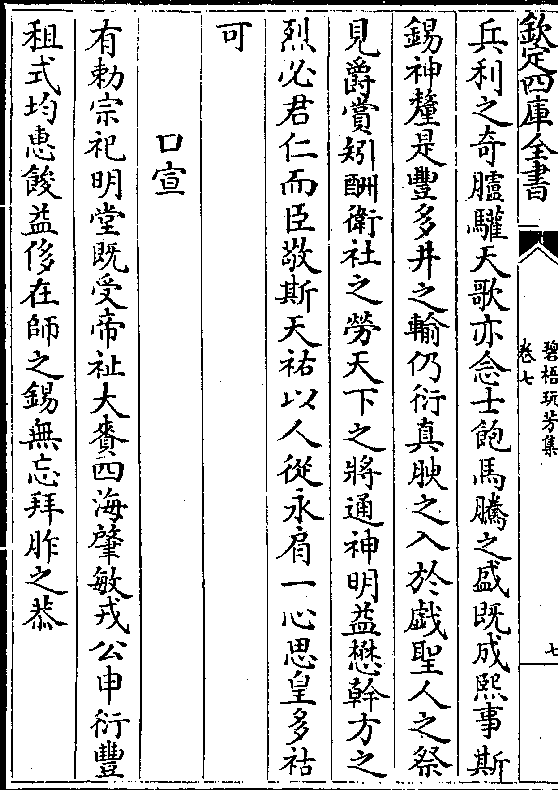 欽定四庫全書
碧梧玩芳集
卷七
七
兵利之奇臚驩天歌亦念士飽馬騰之盛既成熙事斯
錫神釐是豐多井之輸仍衍真腴之入於戯聖人之祭
見爵賞矧酬衛社之勞天下之將通神明益懋幹方之
烈必君仁而臣敬斯天祐以人從永肩一心思皇多祜
可
口宣
有勅宗祀明堂既受帝祉大賚四海肇敏戎公申衍豐
租式均惠餕益侈在師之錫無忘拜胙之恭